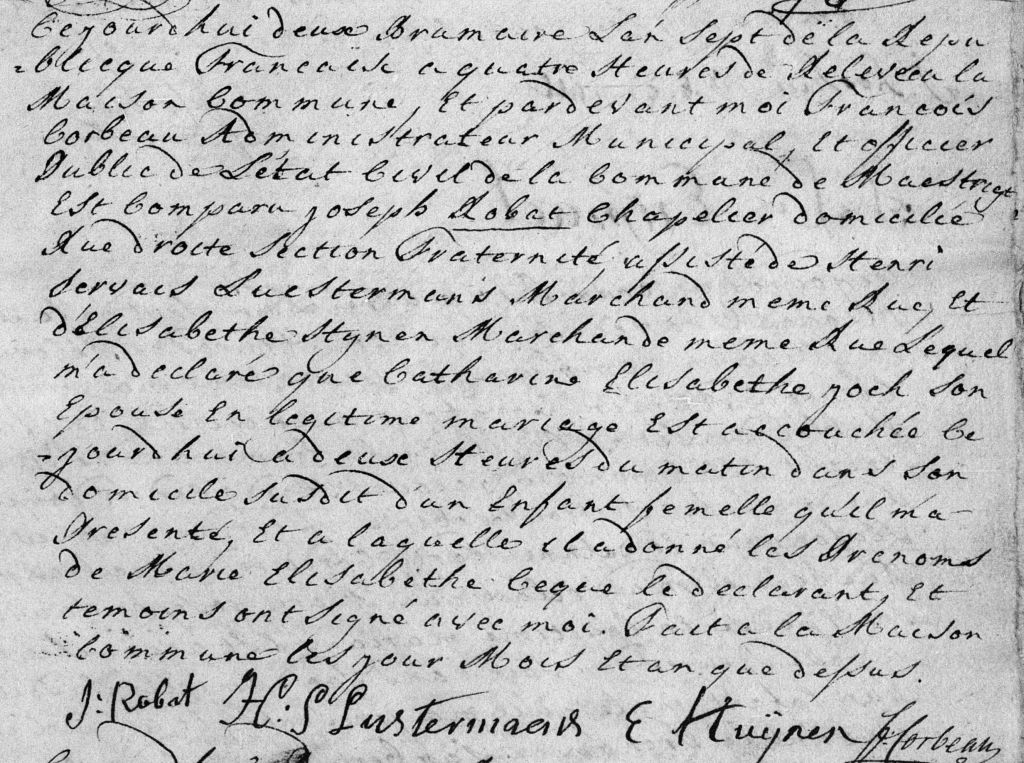 Cejourdhui deux Brumaire L'an Sept de la Repu
=blicque Francaise a quatre Heures de Relevée a la
Maison Commune, Et pardevant moi Francois
Corbeau Administrateur Municipal, Et officier
Public de L'état Civil de la Commune de Maestrigt
Est Comparu joseph Robat Chapelier domicilié
Rue droite Section Fraternité, assisté de Henri
Servais Luestermans Marchand meme Rue, Et
d'Elisabethe Hynen Marchande meme Rue Lequel
m'a declaré que Catharine Elisabethe joch Son
Epouse En legitime mariage Est accouchée Ce
=jourdhui a deux Heures du matin dans Son
domicile susdit d'un Enfant femelle qu'il m'a
Presenté, Et a laquelle il a donné les Prenoms
de Marie Elisabethe Ceque le declarant, Et
temoins ont Signé avec moi. Fait a la Maison
Commune les jour Mois Et an que dessus.
J: Robat H. S Lustermans E Huÿnen F Corbeau